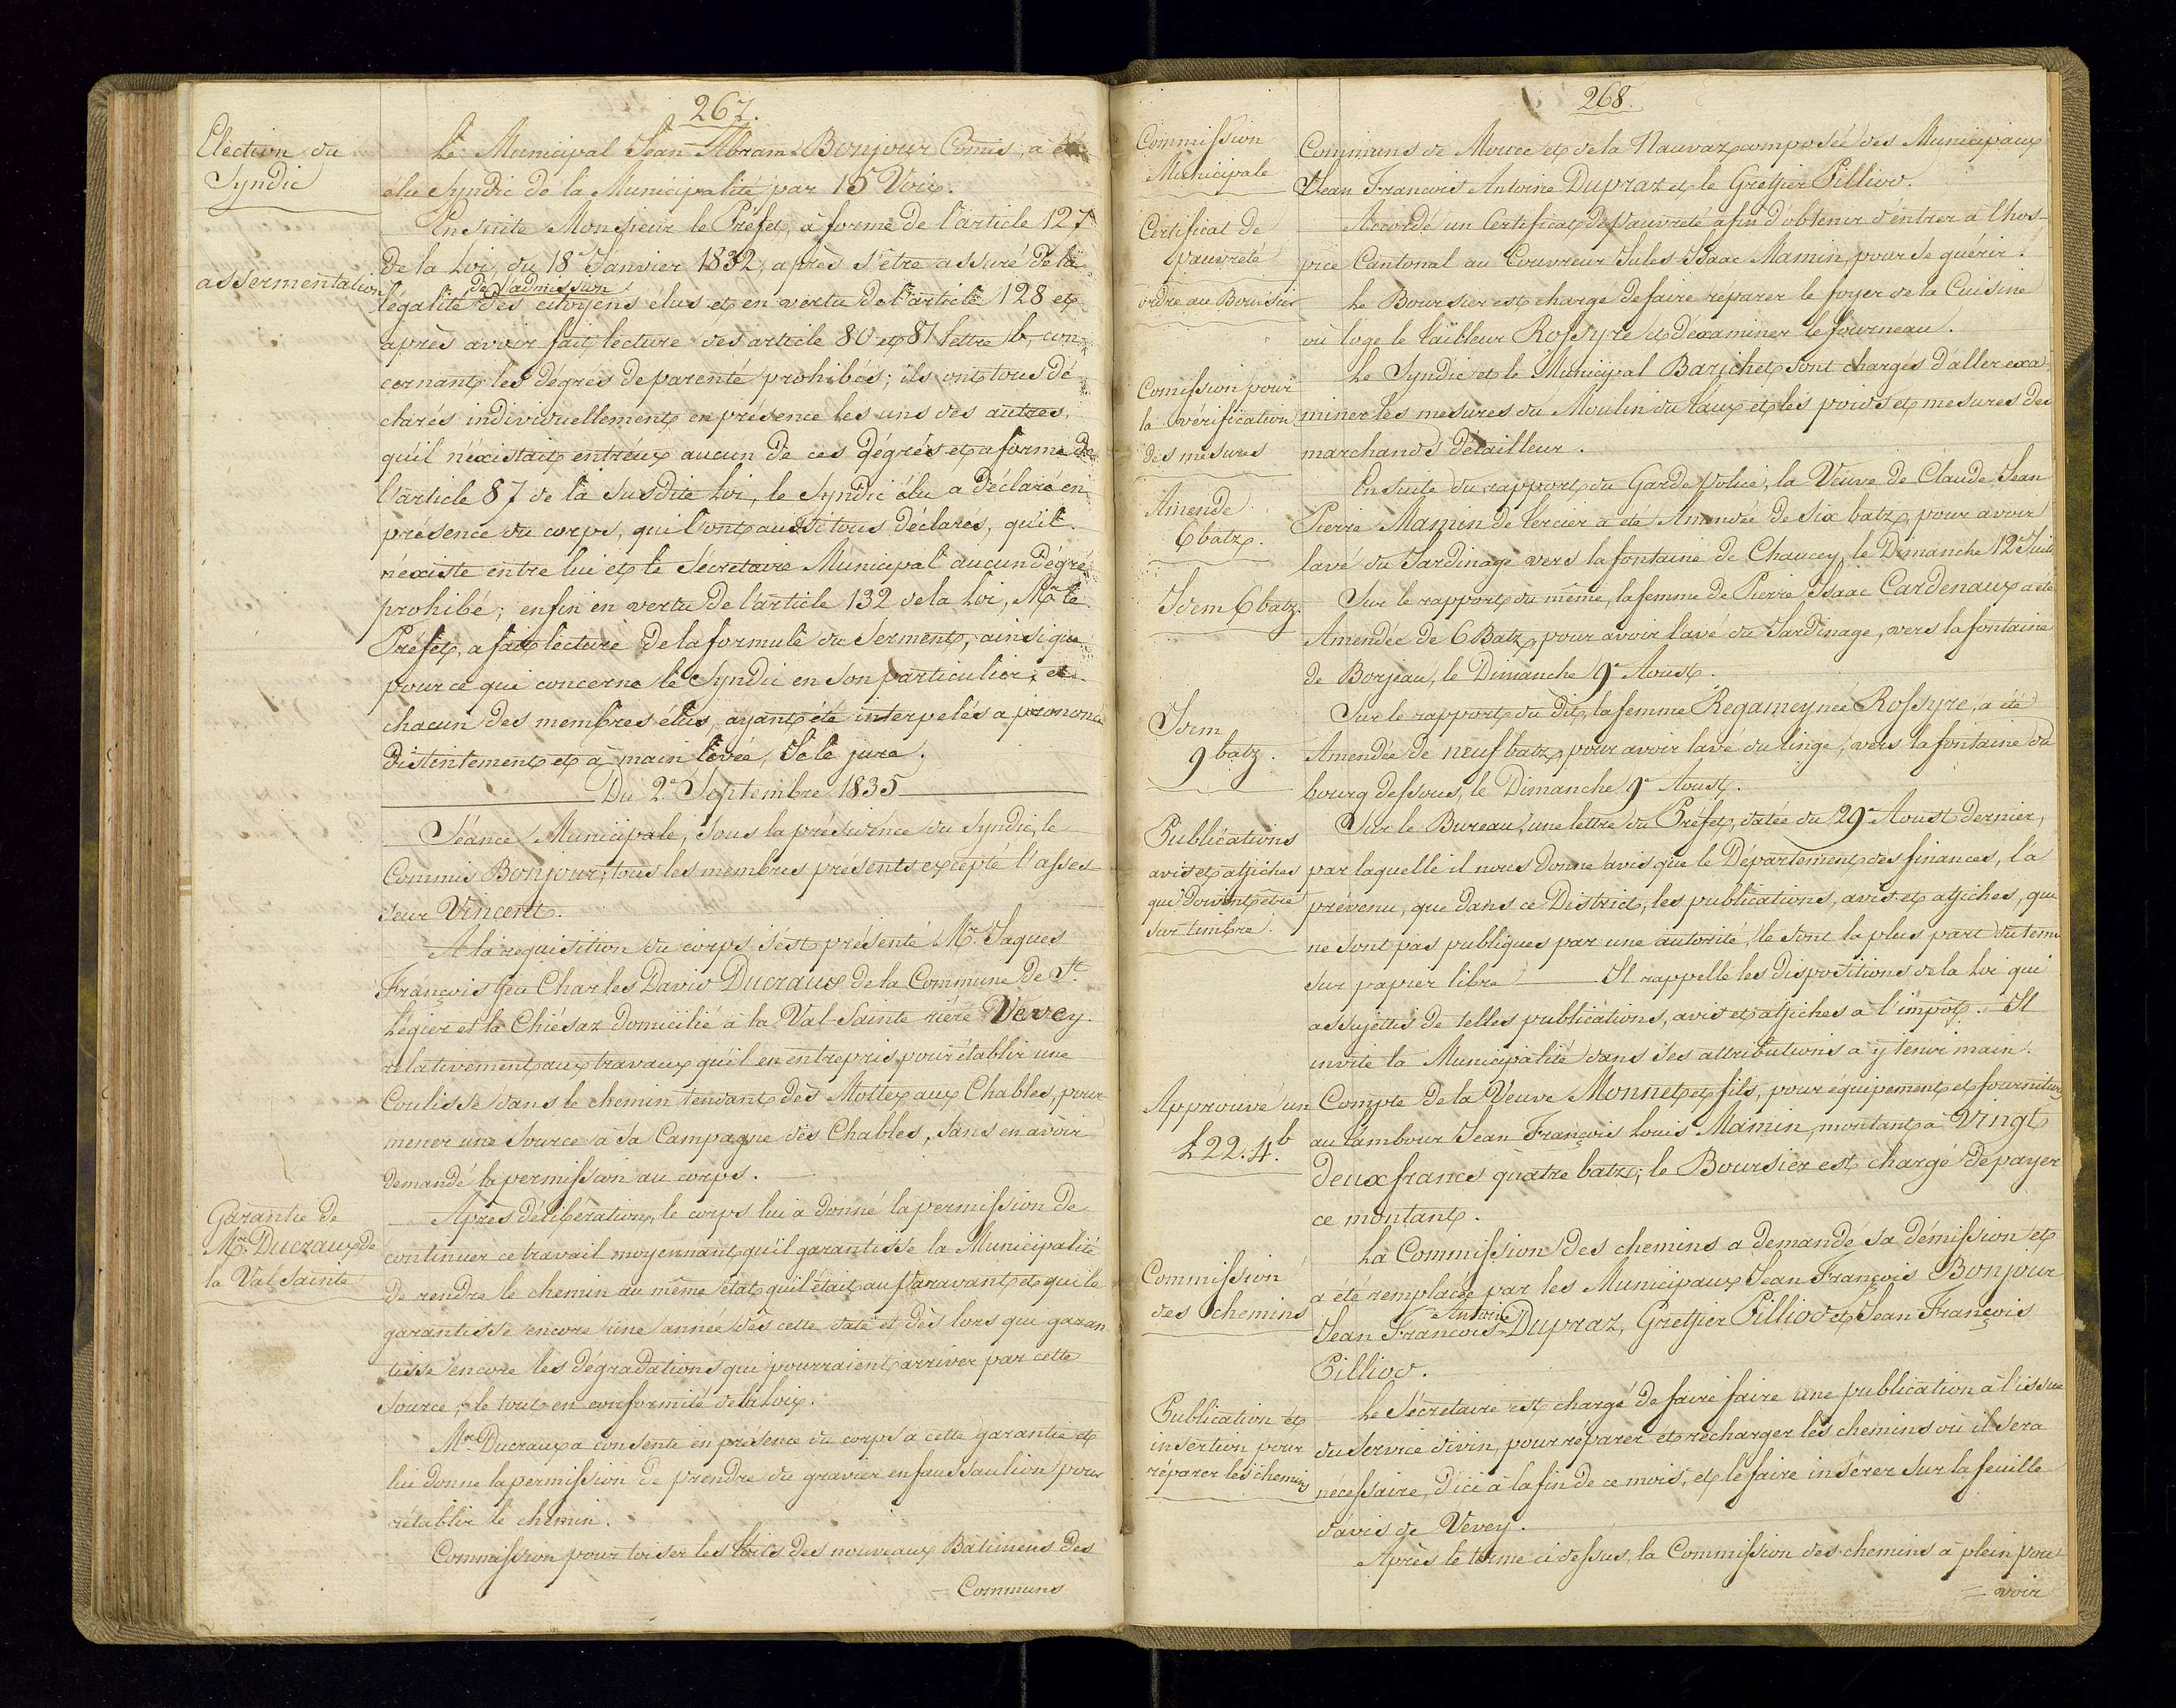 267.
Election du
Syndic
Le Municipal Jean Abram Bonjour Comis, a été
élu Syndic de la Municipalité par 15 Voix.
Ensuite Monsieur le Préfet, à forme de l'article 127
de la Loi, du 18e Janvier 1832, après s'être assuré de la
assermentation
de l'admission
légalité des citoyens élus et en vertu de l'article 128 et
après avoir fait lecture des article 80 et 81 lettre b, con-
cernant les dégrés de parenté prohibés; ils ont tous dé
clarés individuellement en présence les uns des autres,
qu'il n'éxistait entr'eux aucun de ces dégrés et a forme de
l'article 87 de la susdite Loi, le Syndic élu a déclaré en
présence du corps, qui l'ont aussi tous déclarés, qu'il
n'éxiste entre lui et le Sécretaire Municipal aucun dégré
prohibé; enfin en vertu de l'article 132 de la Loi, Mr le
Préfet, a fait lecture de la formule du Serment, ainsi que
pour ce qui concerne le Syndic en son particulier; et
chacun des membres élus, ayant été interpelés a prononcé
distintement et à main levée, Je le jure.
Du 2e Septembre 1835
Séance Municipale, sous la présidence du Syndic, le
Commis Bonjour, tous les membres présents excepté l'asses
seur Vincent.
A la requisition du corps s'est présenté Mr. Jaques
François feu Charles David Ducraux de la Commune de St.
Légier et la Chiésaz domicilié à la Val Sainte rière Vevey
relativement aux travaux qu'il en entrepris pour établir une
Coulisse dans le chemin tendant dès Mottex aux Chables, pour
mener une source à sa Campagne des Chables, sans en avoir
demandé la permission au corps.
Garantie de
Mr. Ducraux de
la Val Sainte
Après déliberation, le corps lui a donné la permission de
continuer ce travail moyennant qu'il garantisse la Municipalité
de rendre le chemin au même état qu'il était au paravant et qui le
garantisse encore une année dès cette date et dès lors qui garan
tisse encore les dégradations qui pourraient arriver par cette
source; le tout en conformité de la Loix.
Mr. Ducraux a consente en présence du corps a cette garantie et
lui donne la permission de prendre du gravier en faussaulion pour
rétablir le chemin.
Commission pour toiser les toits des nouveaux Bâtimens des
= Communs
268.
Commission
Municipale
Communs de Mouce et de la Nauvaz composée des Municipaux
Jean Francois Antoine Dupraz et le Greffier Pilliod.
Certificat de
pauvreté
Accordé un Certificat de pauvreté afin d'obtenir d'entrer a l'hos-
pice Cantonal au Couvreur Jules Isaac Mamin, pour se guérir.
ordre au Boursier
Le Boursier est chargé de faire réparer le foyer de la Cuisine
où loge le tailleur Rossyre et d'éxaminer le fourneau.
Comission pour
la vérification
des mesures
Le Syndic et le Municipal Barichet sont chargés d'aller exa
miner les mesures du Moulin du taux et les poids et mesures des
marchands détailleur.
Amende
6 batz.
Ensuite du rapport du Garde police, la Veuve de Claude Jean
Pierre Mamin de Cercier a été Amendée de six batz, pour avoir
lavé du Jardinage vers la fontaine de Chaucey, le Dimanche 12e Juill
Idem 6 batz.
Sur le rapport du même, la femme de Pierre Isaac Cardenaux a été
Amendée de 6 Batz, pour avoir lavé du Jardinage, vers la fontaine
de Borjeau, le Dimanche 9e Aoust.
Idem
9 batz.
Sur le rapport du dit, la femme Regamey née Rossyre, a été
Amendée de neuf batz, pour avoir lavé du linge, vers la fontaine du
bourg dessous, le Dimanche 9e Aoust.
Publications
avis et affiches
qui doivent etre
sur timbre.
Sur le Bureau, une lettre du Préfet, datée du 29e Aoust dernier,
par laquelle il nous donne avis que le Département des finances, l'a
prévenu, que dans ce District, les publications, avis et affiches, qui
ne sont pas publiques par une autorité, le sont la plus part du tems
sur papier libre Il rappelle les dispositions de la Loi qui
assujettis de telles publications, avis et affiches a l'impôt. Il
invite la Municipalité dans ses attributions à y tenir main.
Approuvé un
£ 22. 4. b
Compte de la Veuve Monnet et fils, pour équipement et fournitures
au tambour Jean François Louis Mamin, montant à Vingt
deux francs quatre batz; le Boursier est chargé de payer
ce montant.
Commission
des chemins
La Commission des chemins a demandé sa démission et
a été remplacée par les Municipaux Jean François Bonjour
Antoine
Jean Francois Dupraz, Greffier Pilliod et Jean François
Pilliod.
Publication et
insertion pour
réparer les chemins
Le Sécretaire est chargé de faire faire une publication à l'issue
du Service divin, pour réparer et recharger les chemins où il sera
nécessaire, d'ici à la fin de ce mois, et le faire insérer sur la feuille
d'avis de Vevey.
Après le terme ci dessus, la Commission des chemins à plein pou
= voir